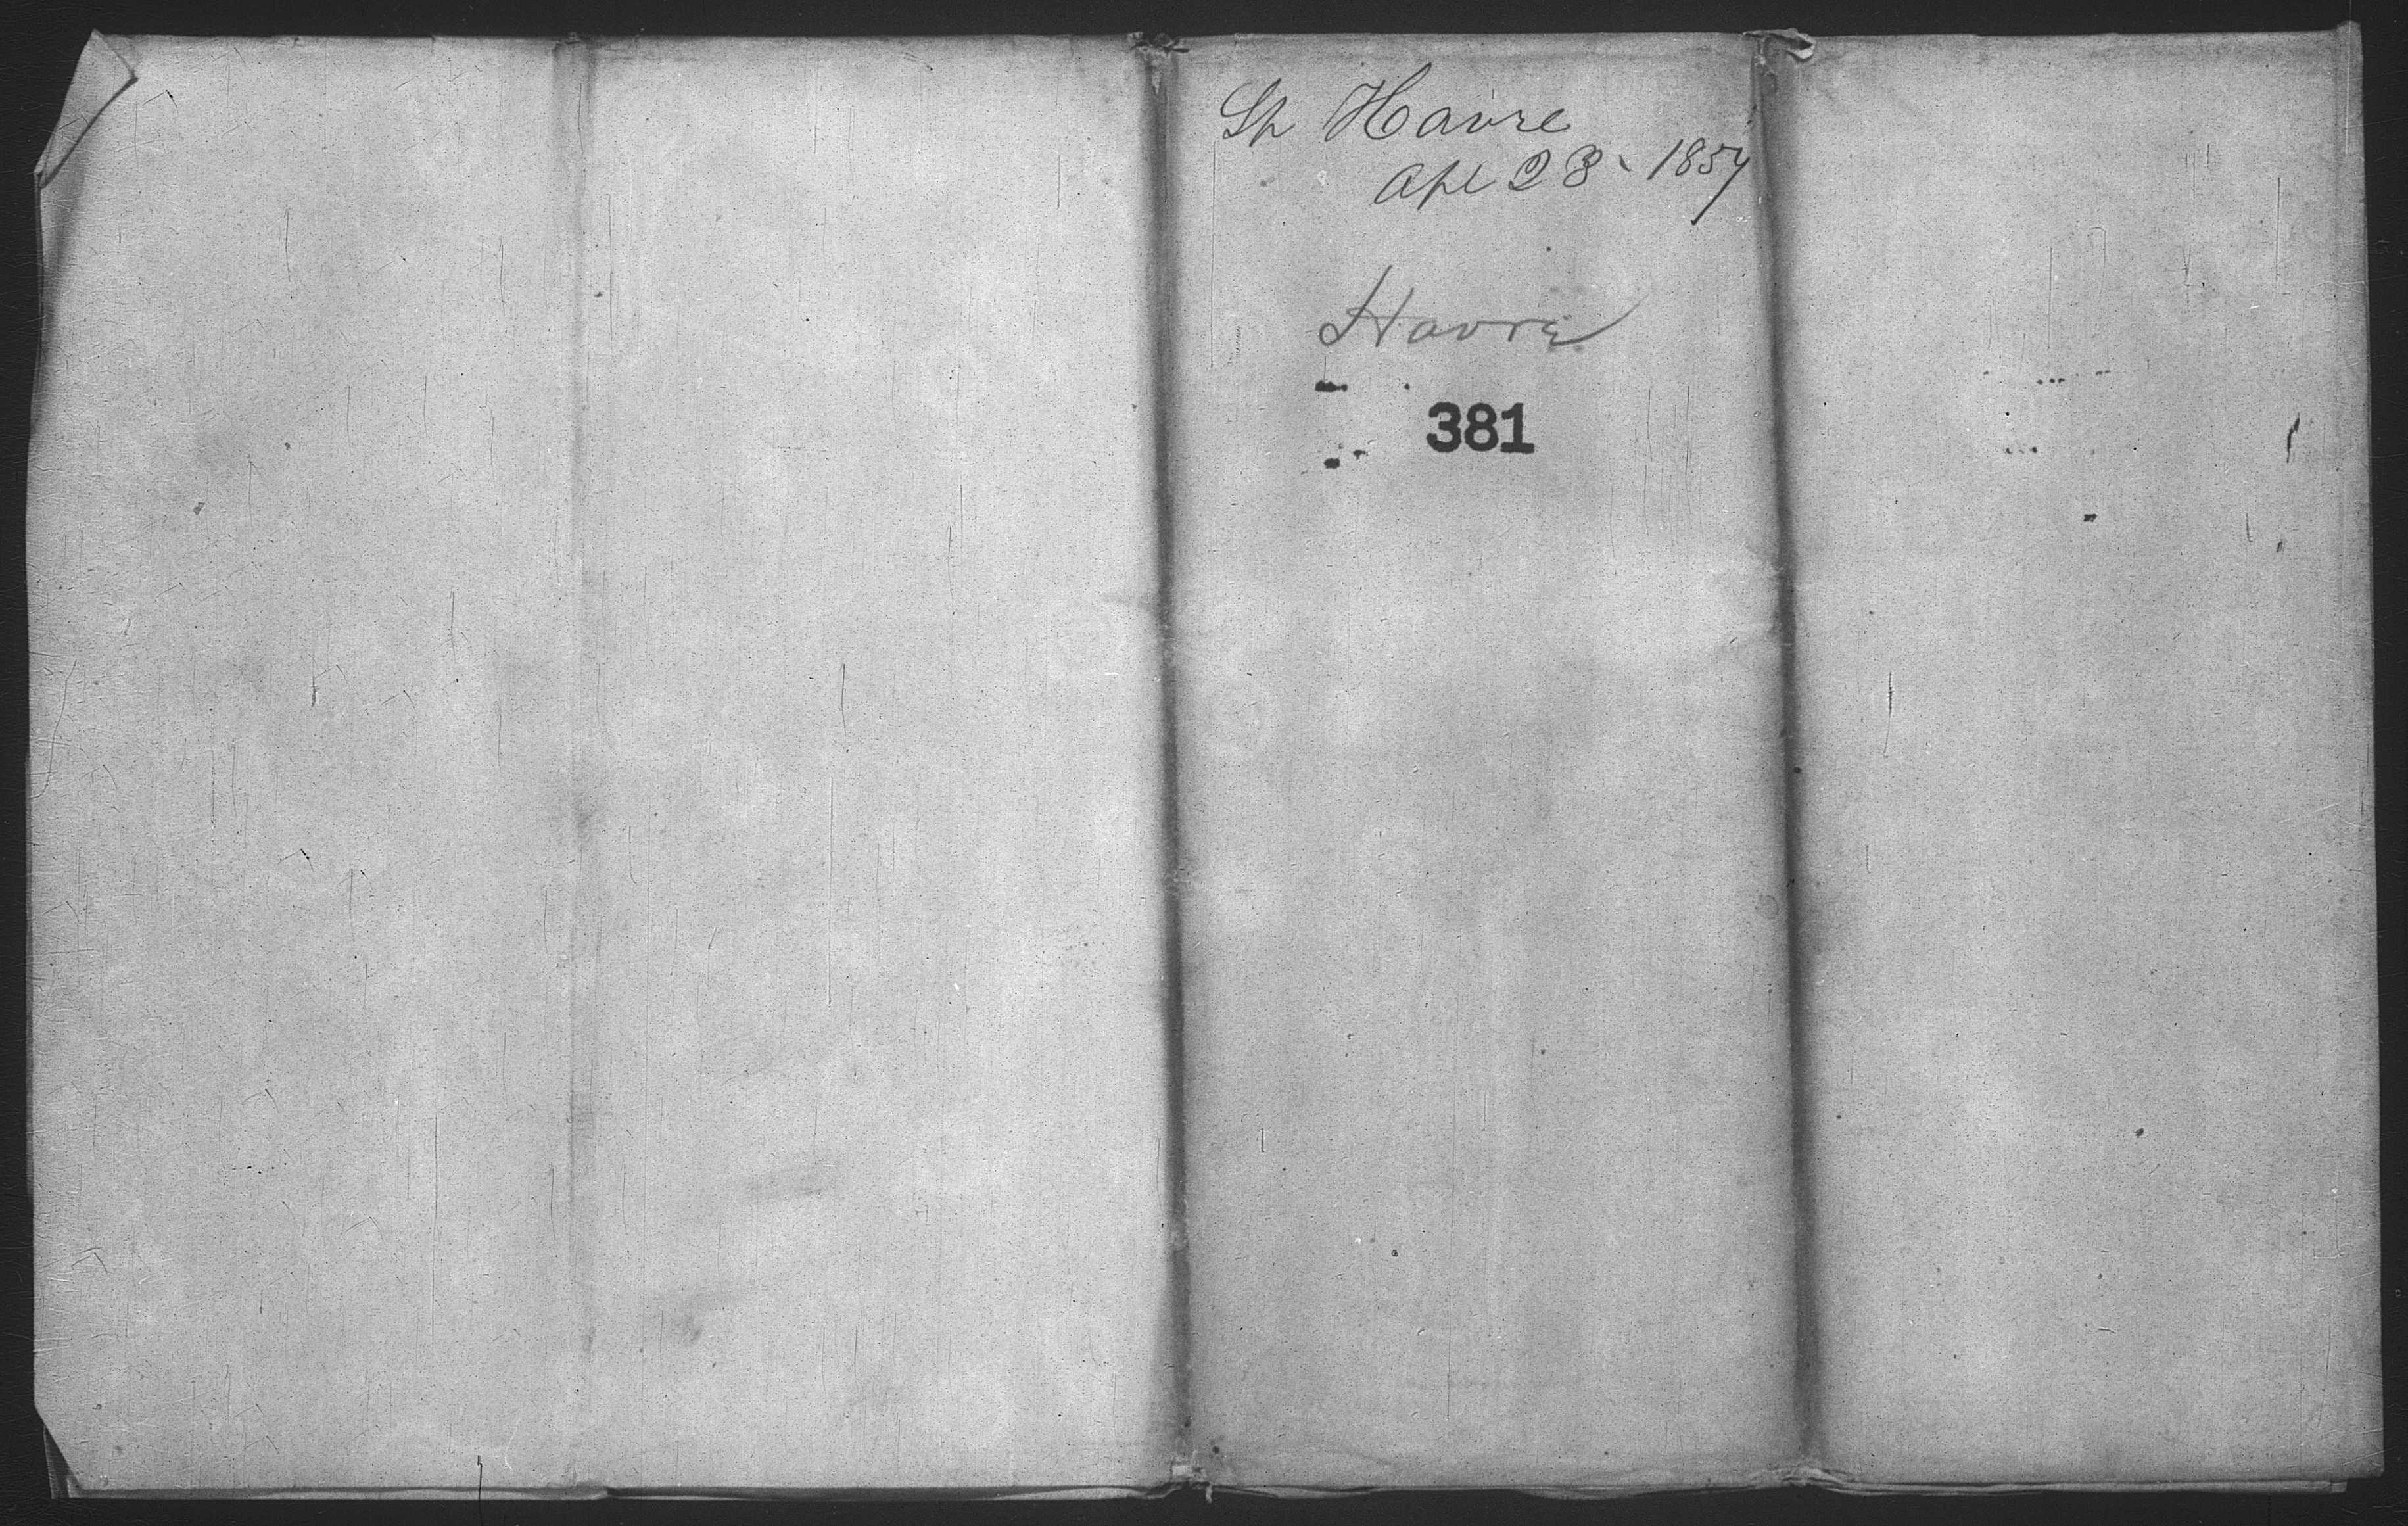 Sh Havre
Apl 28 1857
Havre
381